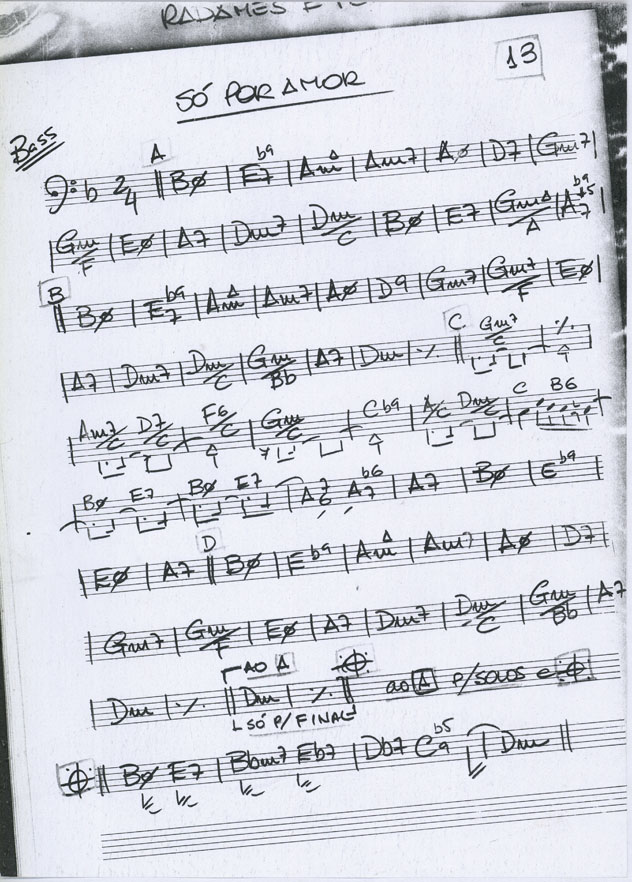 RADAMES E
13
SÓ POR AMOR
Bass
A
♭ 2/4 || BØ | E7 b9 | Am△ | Am7 | AØ | D7 | Gm7 |
| Gm/F | EØ | A7 | Dm7 | Dm/C | BØ | E7 | Gm△/A | A7 b9 #5 |
B
|| BØ | E7 b9 | Am△ | Am7 | AØ | D9 | Gm7 | Gm7/F | EØ |
| A7 | Dm7 | Dm/C | Gm/Bb | A7 | Dm | ٪ || C Gm7/C | ٪ |
| Am7/C D7/C | F6/C | Gm/C | C b9 | A/C Dm/C | C B6 |
| BØ E7 | BØ E7 | A7 6 A7 b6 | A7 | BØ | E b9 |
| EØ | A7 || D BØ | E b9 | Am△ | Am7 | AØ | D7 |
| Gm7 | Gm/F | EØ | A7 | Dm7 | Dm/C | Gm/Bb | A7
AO A
| Dm | ٪ || Dm | ٪ || ao A P/ SOLOS e
SÓ P/ FINAL
|| BØ E7 | Bbm7 Eb7 | Db7 C9 b5 | Dm ||